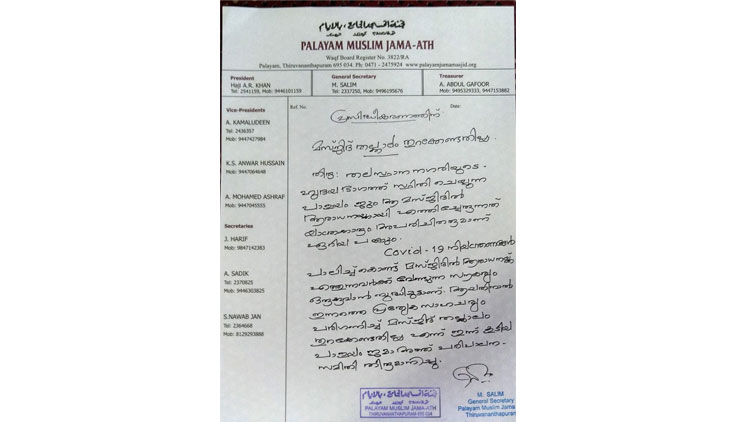 PALAYAM MUSLIM JAMA-ATH
Waqf Board Register No. 3822/RA
Palayam, Thiruvananthapuram 695 034. Ph: 0471 - 2475924 www.palayamjumamasjid.org
President
Haji A.R. KHAN
Tel: 2541159, Mob: 9446101159
General Secretary
M. SALIM
Tel: 2337250, Mob: 9496195676
Treasurer
A. ABDUL GAFOOR
Mob: 9495329333, 9447153882
Vice-Presidents
A. KAMALUDEEN
Tel: 2436357
Mob: 9447427984
K.S. ANWAR HUSSAIN
Mob: 9447064648
A. MOHAMED ASHRAF
Mob: 9447045555
Secretaries
J. HARIF
Mob: 9847142383
A. SADIK
Tel: 2370825
Mob: 9446303825
S.NAWAB JAN
Tel: 2364668
Mob: 8129293888
Ref. No.
Date:
പ്രസിദ്ധീകരണത്തിന്
മസ്ജിദ് തല്ക്കാലം തുറക്കേണ്ടതില്ല.
തിരു: തലസ്ഥാന നഗരിയുടെ
ഹൃദയ ഭാഗത്ത് സ്ഥിതി ചെയ്യുന്ന
പാളയം ജുമാ മസ്ജിദിൽ
ആരാധനയ്ക്കായി എത്തിച്ചേരുന്നത്
അപരിചിതരുമാണ്
ഏറിയ പങ്കും.
Covid-19 നിയന്ത്രണങ്ങൾ
പാലിച്ച് കൊണ്ട് മസ്ജിദിൽ ആരാധനക്ക്
എത്തുന്നവർക്ക് വേണ്ടുന്ന സൗകര്യം
ഒരുക്കുവാൻ ബുദ്ധിമുട്ടാണ്. ആയതിനാൽ
ഇന്നത്തെ പ്രത്യേക സാഹചര്യം
പരിഗണിച്ച് മസ്ജിദ് തല്ക്കാലം
തുറക്കേണ്ടതില്ല എന്ന് ഇന്ന് കൂടിയ
പാളയം ജുമാ അത്ത് പരിപാലന
സമിതി തീരുമാനിച്ചു.
PALAYAM MUSLIM JAMA-ATH
THIRUVANANTHAPURAM 695 034
M. SALIM
General Secretary
Palayam Muslim Jama
Thiruvananthapuram